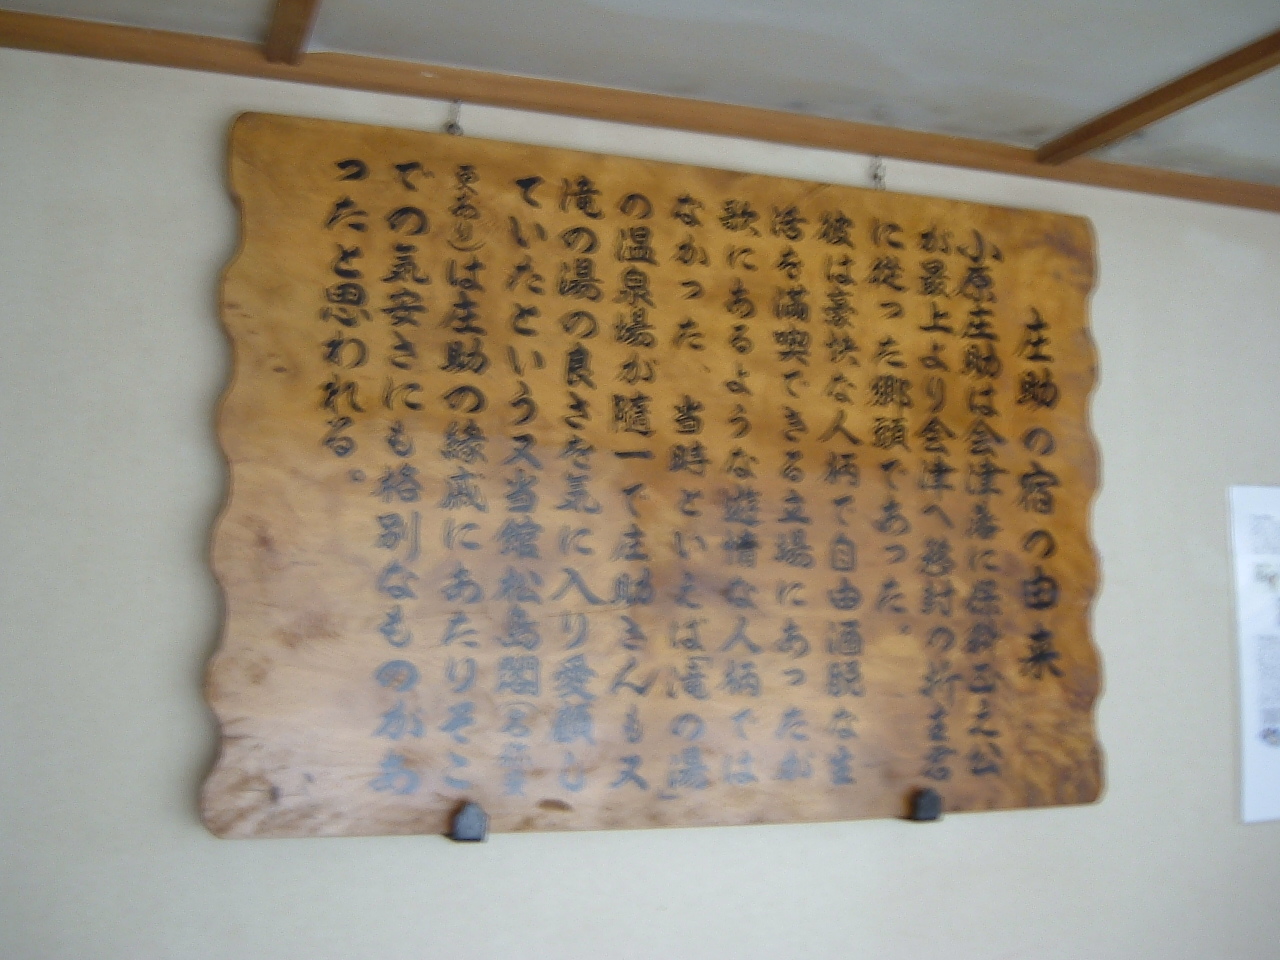 庄助の宿の由来
小原庄助は会津藩に保科正之公
が最上より会津へ移封の折
に従った郷頭であった。
彼は豪快な人柄で自由洒脱な生
活を満喫できる立場にあったが
歌にあるような遊惰な人柄では
なかった 当時といえば「滝の湯」
の温泉場が随一で庄助さんも又
滝の湯の良さを気に入り愛顧し
ていたという又当館松島閣
は庄助の縁戚にあたりそこ
での気安さにも格別なものがあ
ったと思われる。